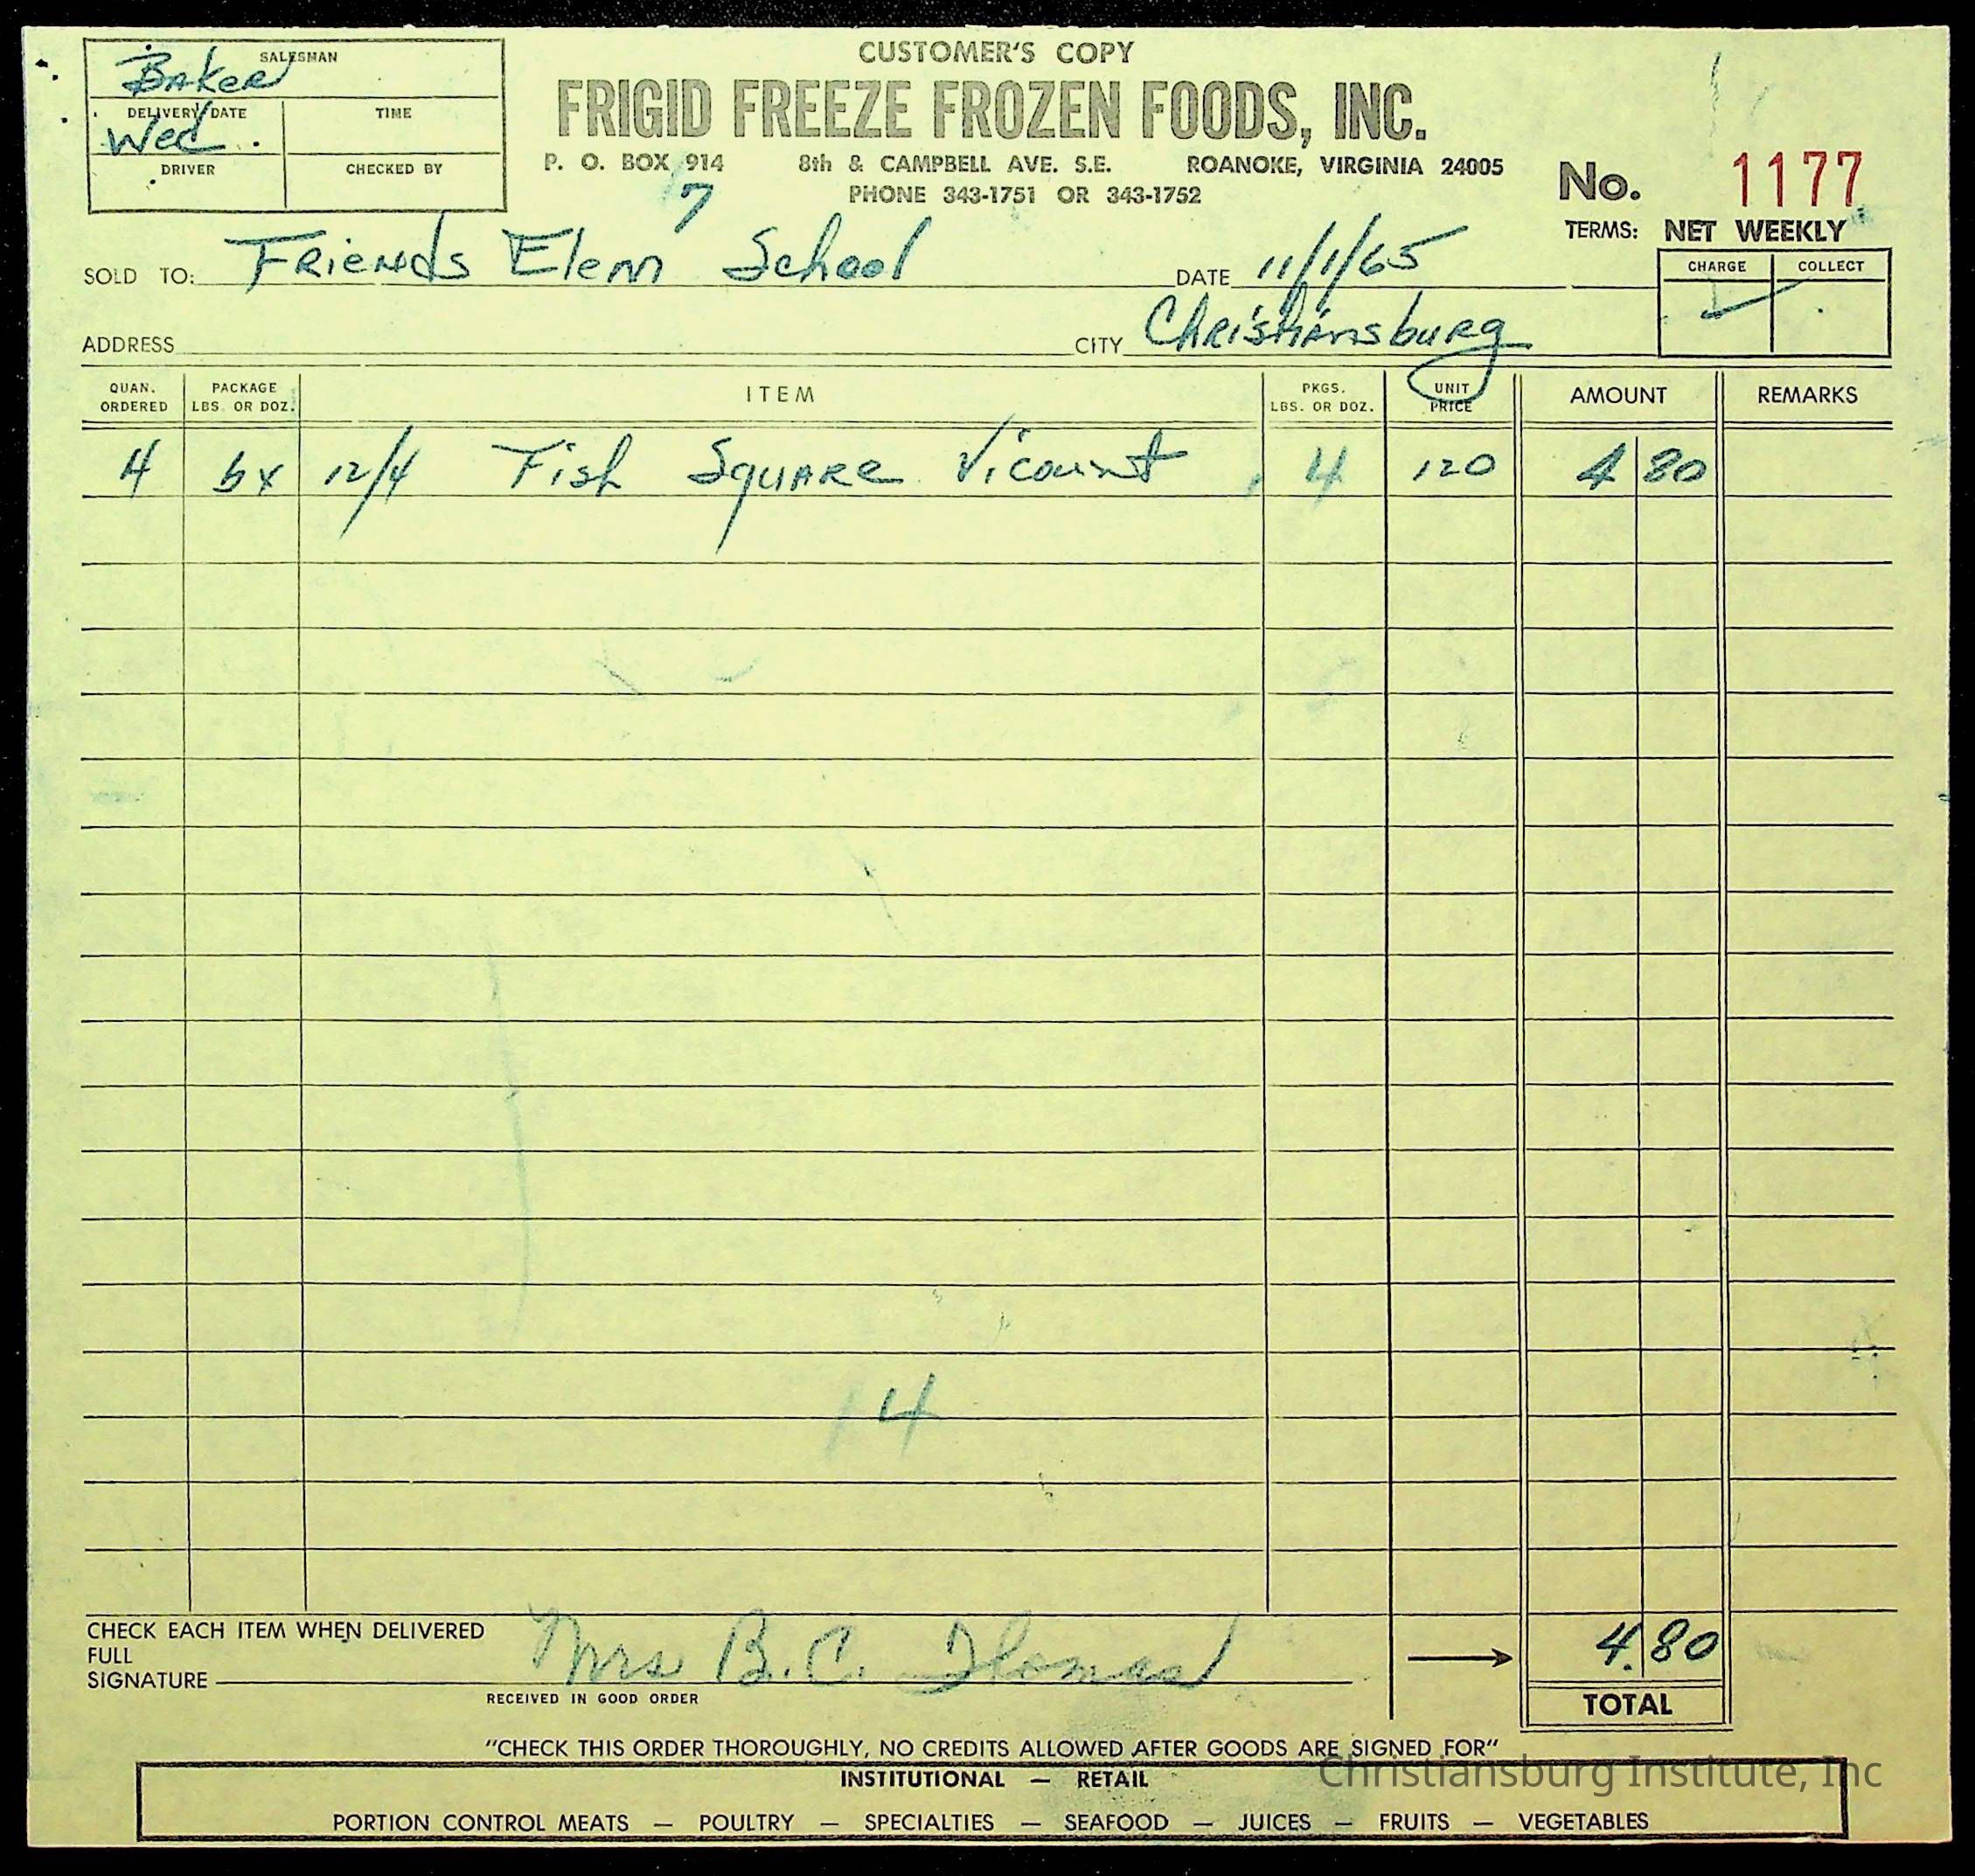 CUSTOMER'S COPY
FRIGID FREEZE FROZEN FOODS, INC.
P. O. BOX 914 8th & CAMPBELL AVE. S.E. ROANOKE, VIRGINIA 24005
PHONE 343-1751 OR 343-1752
SALESMAN
Baker
DELIVERY DATE TIME
Wed.
DRIVER CHECKED BY
7
No. 1177
TERMS: NET WEEKLY
CHARGE COLLECT
✓
SOLD TO: Friends Elem School DATE 11/1/65
ADDRESS CITY Christiansburg
QUAN. ORDERED PACKAGE LBS. OR DOZ. ITEM PKGS. LBS. OR DOZ. UNIT PRICE AMOUNT REMARKS
4 bx 12/4 Fish Square Vicount 4 120 4 80
14
CHECK EACH ITEM WHEN DELIVERED
FULL
SIGNATURE Mrs B. C. Thomas 4.80
RECEIVED IN GOOD ORDER
TOTAL
"CHECK THIS ORDER THOROUGHLY, NO CREDITS ALLOWED AFTER GOODS ARE SIGNED FOR"
INSTITUTIONAL — RETAIL
PORTION CONTROL MEATS — POULTRY — SPECIALTIES — SEAFOOD — JUICES — FRUITS — VEGETABLES
Christiansburg Institute, Inc